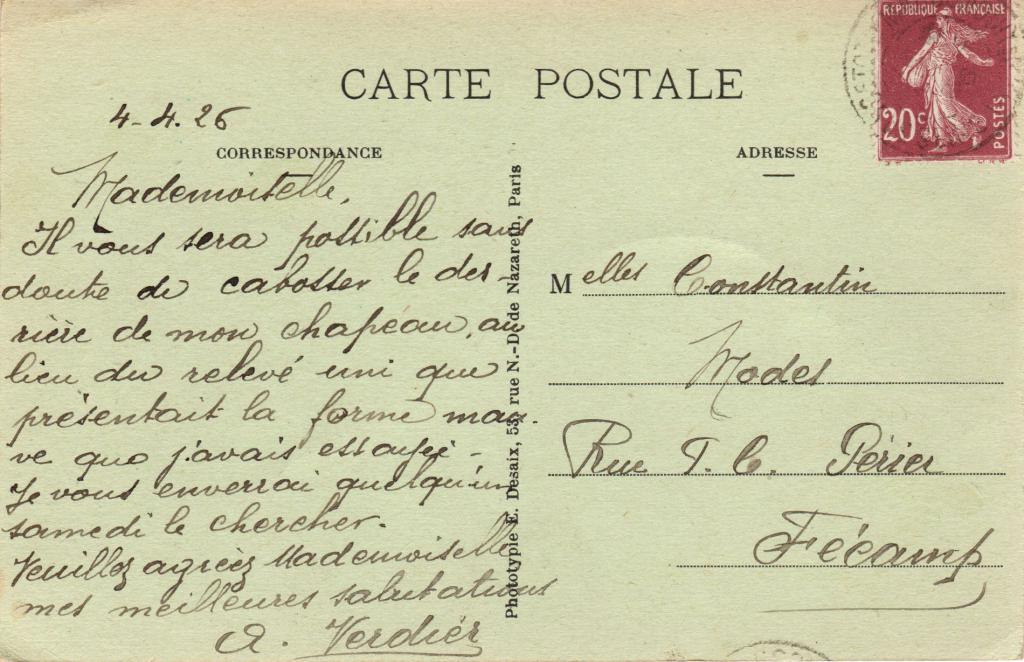 RÉPUBLIQUE FRANÇAISE
20c
POSTES
CARTE POSTALE
4-4.26
CORRESPONDANCE
ADRESSE
Mademoiselle,
Il vous sera possible sans
doute de cabosser le der-
rière de mon chapeau, au
lieu du relevé uni que
présentait la forme mau-
ve que j'avais essayée -
Je vous enverrai quelqu'un
samedi le chercher.
Veuillez agréez Mademoiselle
mes meilleures salutations
A. Verdier
Phototypie E. Desaix, 53, rue N.-D. de Nazareth, Paris
Melles Constantin
Modes
Rue T. C. Périer
Fécamp